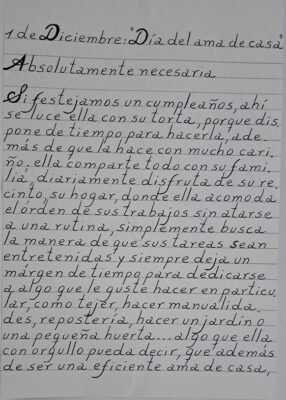 1 de Diciembre: "Día del ama de casa"
Absolutamente necesaria
Si festejamos un cumpleaños, ahí
se luce ella con su torta, porque dis
pone de tiempo para hacerla, ade.
más de que la hace con mucho cari.
ño. ella comparte todo con su fami.
lia, diariamente disfruta de su re.
cinto, su hogar, donde ella acomoda
el orden de sus trabajos sin atarse
a una rutina, simplemente busca
la manera de que sus tareas sean
entretenidas y siempre deja un
márgen de tiempo para dedicarse
a algo que le guste hacer en particu
lar, como tejer, hacer manualida.
des, repostería, hacer un jardín o
una pequeña huerta....algo que ella
con orgullo pueda decir, que además
de ser una eficiente ama de casa,